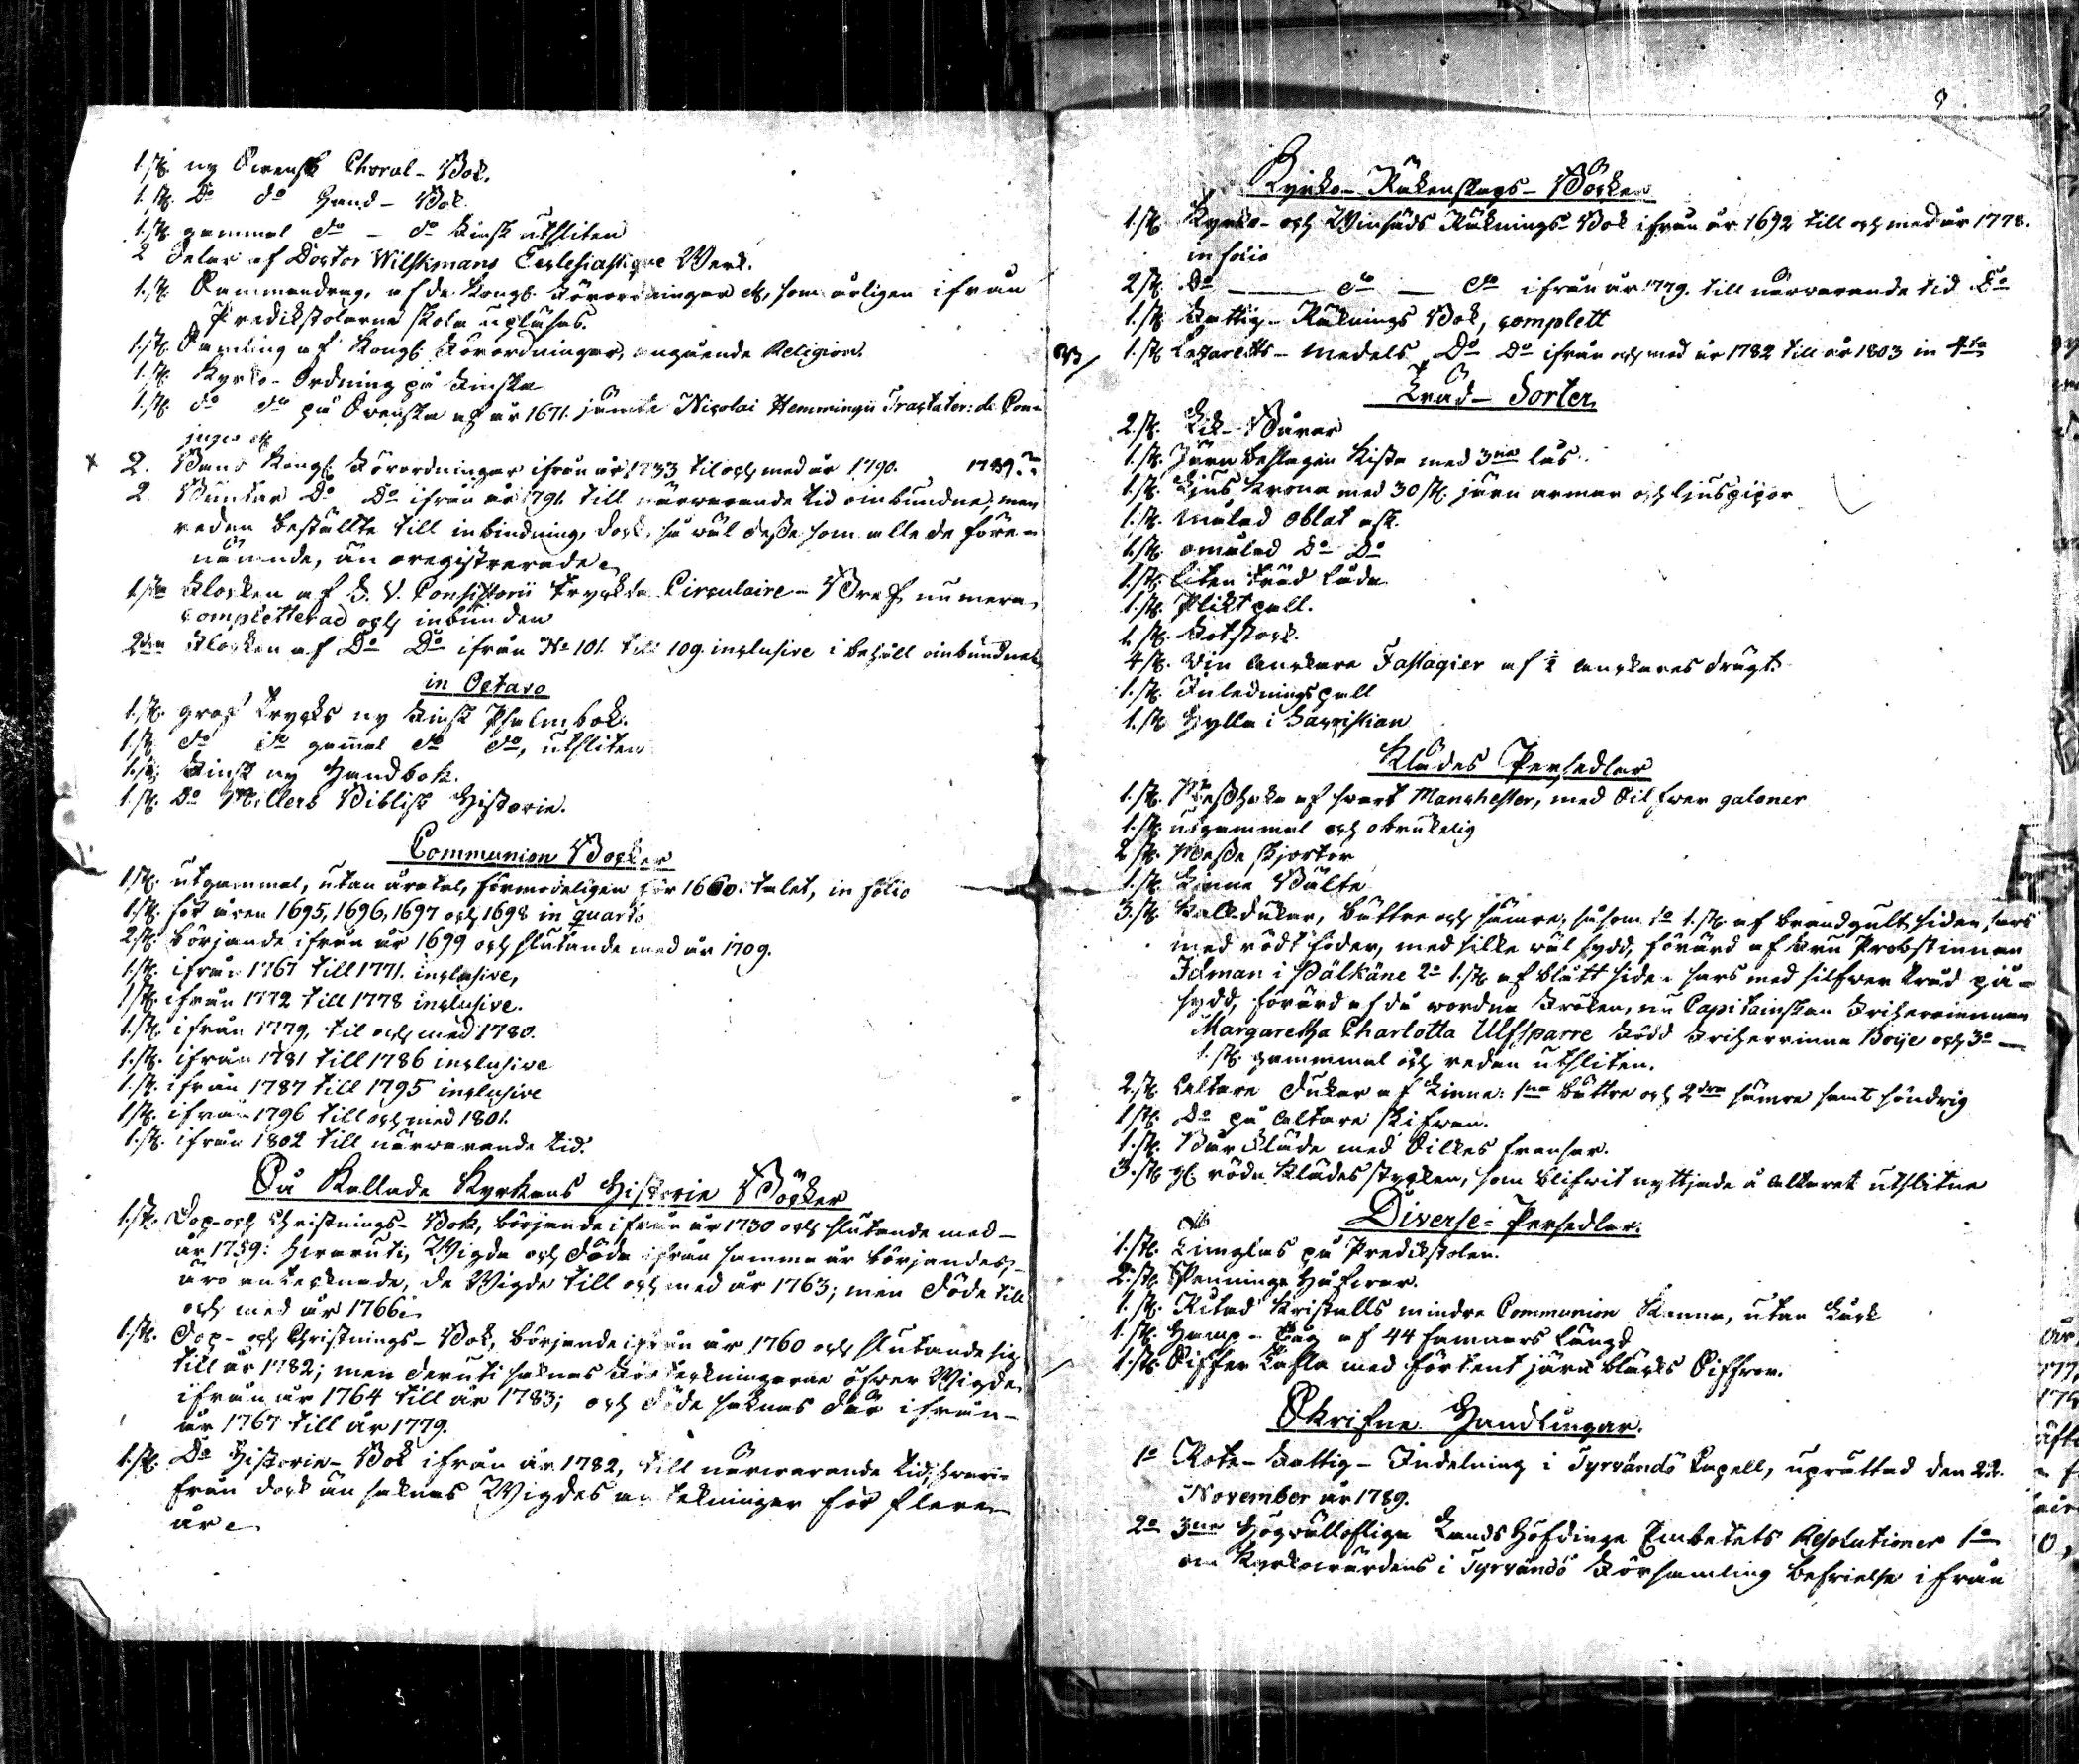 1. st. ny Svensk Choral-Bok.
1. st. Do do Hand-Bok
1. st. gammal do - do Finsk utsliten
2 delar af Doctor Wilskmans Ecclesiastique Werk.
1. st. Sammandrag, af de Kongl. Förordningar etc, som årligen ifrån
Predikstolarne skola upläsas.
1. st. Samling af Kongl. Förordningar, angående Religion.
1. st. Kyrko-Ordning på Finska
1. st. do do på Svenska af år 1671. jämte Nicolai Hemmingii Tractater: de Con-
jugio etc
2. Band Kongl. Förordningar ifrån år 1733 til och med år 1790. 1789
2 Buntar Do Do ifrån år 1791. till närwarande tid ombundne, men
redan beställte till inbindning, dock, så wäl desse som alla de före-
nämnde, än oregistrerade
1sta Flocken af E. V. Consistorii tryckta Circulaire-Bref numera
completterad och inbunden
2dra Flocken af Do Do ifrån No 101. till 109. inclusive i behåll oinbundne
in Octavo
1. st. grof tryks ny Finsk Psalmbok.
1. st. do do gammal do do, utsliten
1. st. Finsk ny Handbok.
1. st. Do Millers Biblisk Historie.
Communion Böcker
1. st. utgammal, utan åratal, förmodeligen för 1660. talet, in folio
1. st. för åren 1695, 1696, 1697 och 1698 in quarto
2. st. börjande ifrån år 1699 och slutande med år 1709.
1. st. ifrån 1767 till 1771. inclusive,
1. st. ifrån 1772 till 1778 inclusive.
1. st. ifrån 1779, til och med 1780.
1. st. ifrån 1781 till 1786 inclusive
1. st. ifrån 1787 till 1795 inclusive
1. st. ifrån 1796 till och med 1801.
1. st. ifrån 1802 till närwarande tid.
Så Kallade Kyrkans Historie Böcker
1. st. Dop- och Christnings-Bok, börjande ifrån år 1730 och slutande med
år 1759: hwaruti, Wigda och döda ifrån samma år börjandes,
äro antecknade, de Wigde till och med år 1763; men döde till
och med år 1766.
1. st. Dop- och Christnings-Bok, börjande ifrån år 1760 och slutande sig
till år 1782; men deruti saknas Förtekningarne öfwer Wigde
ifrån år 1764 till år 1783; och döde saknas där ifrån
år 1767 till år 1779.
1. st. Do Historie-Bok ifrån år 1782, till närwarande tid; hwari-
från dock än saknas Wigdes antekningar för flere
år
Kyrko-Räkenskaps-Böcker
1. st. Kyrko- och Winhäds Räknings-Bok ifrån år 1692 till och med år 1778.
in folio
2. st. Do do do ifrån år 1779. till närwarande tid Do
1. st. Fattig-Räknings Bok, complett
1. st. Lazaretts-Medels Do Do ifrån och med år 1782 till år 1803 in 4to
Träd-Sorter
2. st. Lik-Bårar
1. st. Järn beslagen Kista med 3ne lås
1. st. Ljus Krona med 30 st. järn armar och ljuspipor
1. st. målad Oblat ask.
1. st. omålad Do Do
1. st. liten träd låda
1. st. Pliktpall.
1. st. Fotstock.
4. st. Vin Anckare Fastagier af ½ Anckares drägt.
1. st. Inledningspall
1. st. Hylla i Sacristian
Klädes Persedlar
1. st. Messhake af svart Manchester, med Silfwer galoner
1. st. utgammal och obrukelig
2. st. Messe skjortor
1. st. Linne Bälte
3. st. Kalkdukar, bättre och sämre, såsom 1o 1. st. af brandgult siden, sars
med rödt foder, med silke wäl sydd, förärd af Fru Probstinnan
Idman i Pälkäne 2o 1. st. af blått siden sars med silfwer tråd på-
sydd, förärd af då wordne Fröken, nu Capitainskan Friherrinnan
Margaretha Charlotta Ulfsparre Född Friherrinna Boije och 3o
1. st. gammal och redan utsliten.
2. st. Altare Dukar af Linne: 1na bättre och 2dra sämre samt söndrig
1. st. Do på Altare skifwan.
1. st. Bår Kläde med Silkes fransar.
3. st. gl. röda Klädes stycken, som blifwit nyttjade å Altaret utslitne
Diverse-Persedlar.
1. st. Timglas på Predikstolen.
2. st. Penninge Håfwar.
1. st. Ritad Kristalls mindre Communion Kanna, utan Lock
1. st. Hamp-Tåg af 44 famnars längd
1. st. Siffer Tafla med förtent järn bläcks Siffror.
Skrifne Handlingar.
1o Rote-Fattig-Indelning i Tyrvändö Capell, uprättad den 22.
November år 1789.
2o 3ne Högwällofliga Lands Höfdinge Embetets Resolutioner 1o
om Kyrkowärdens i Tyrvändö Församling befrielse ifrån